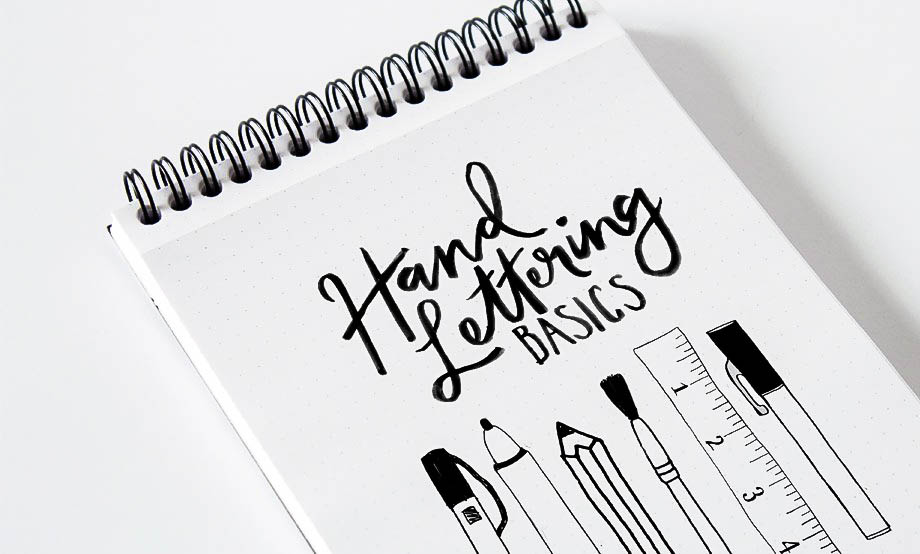 Hand
Lettering
BASICS
1
2
3
4